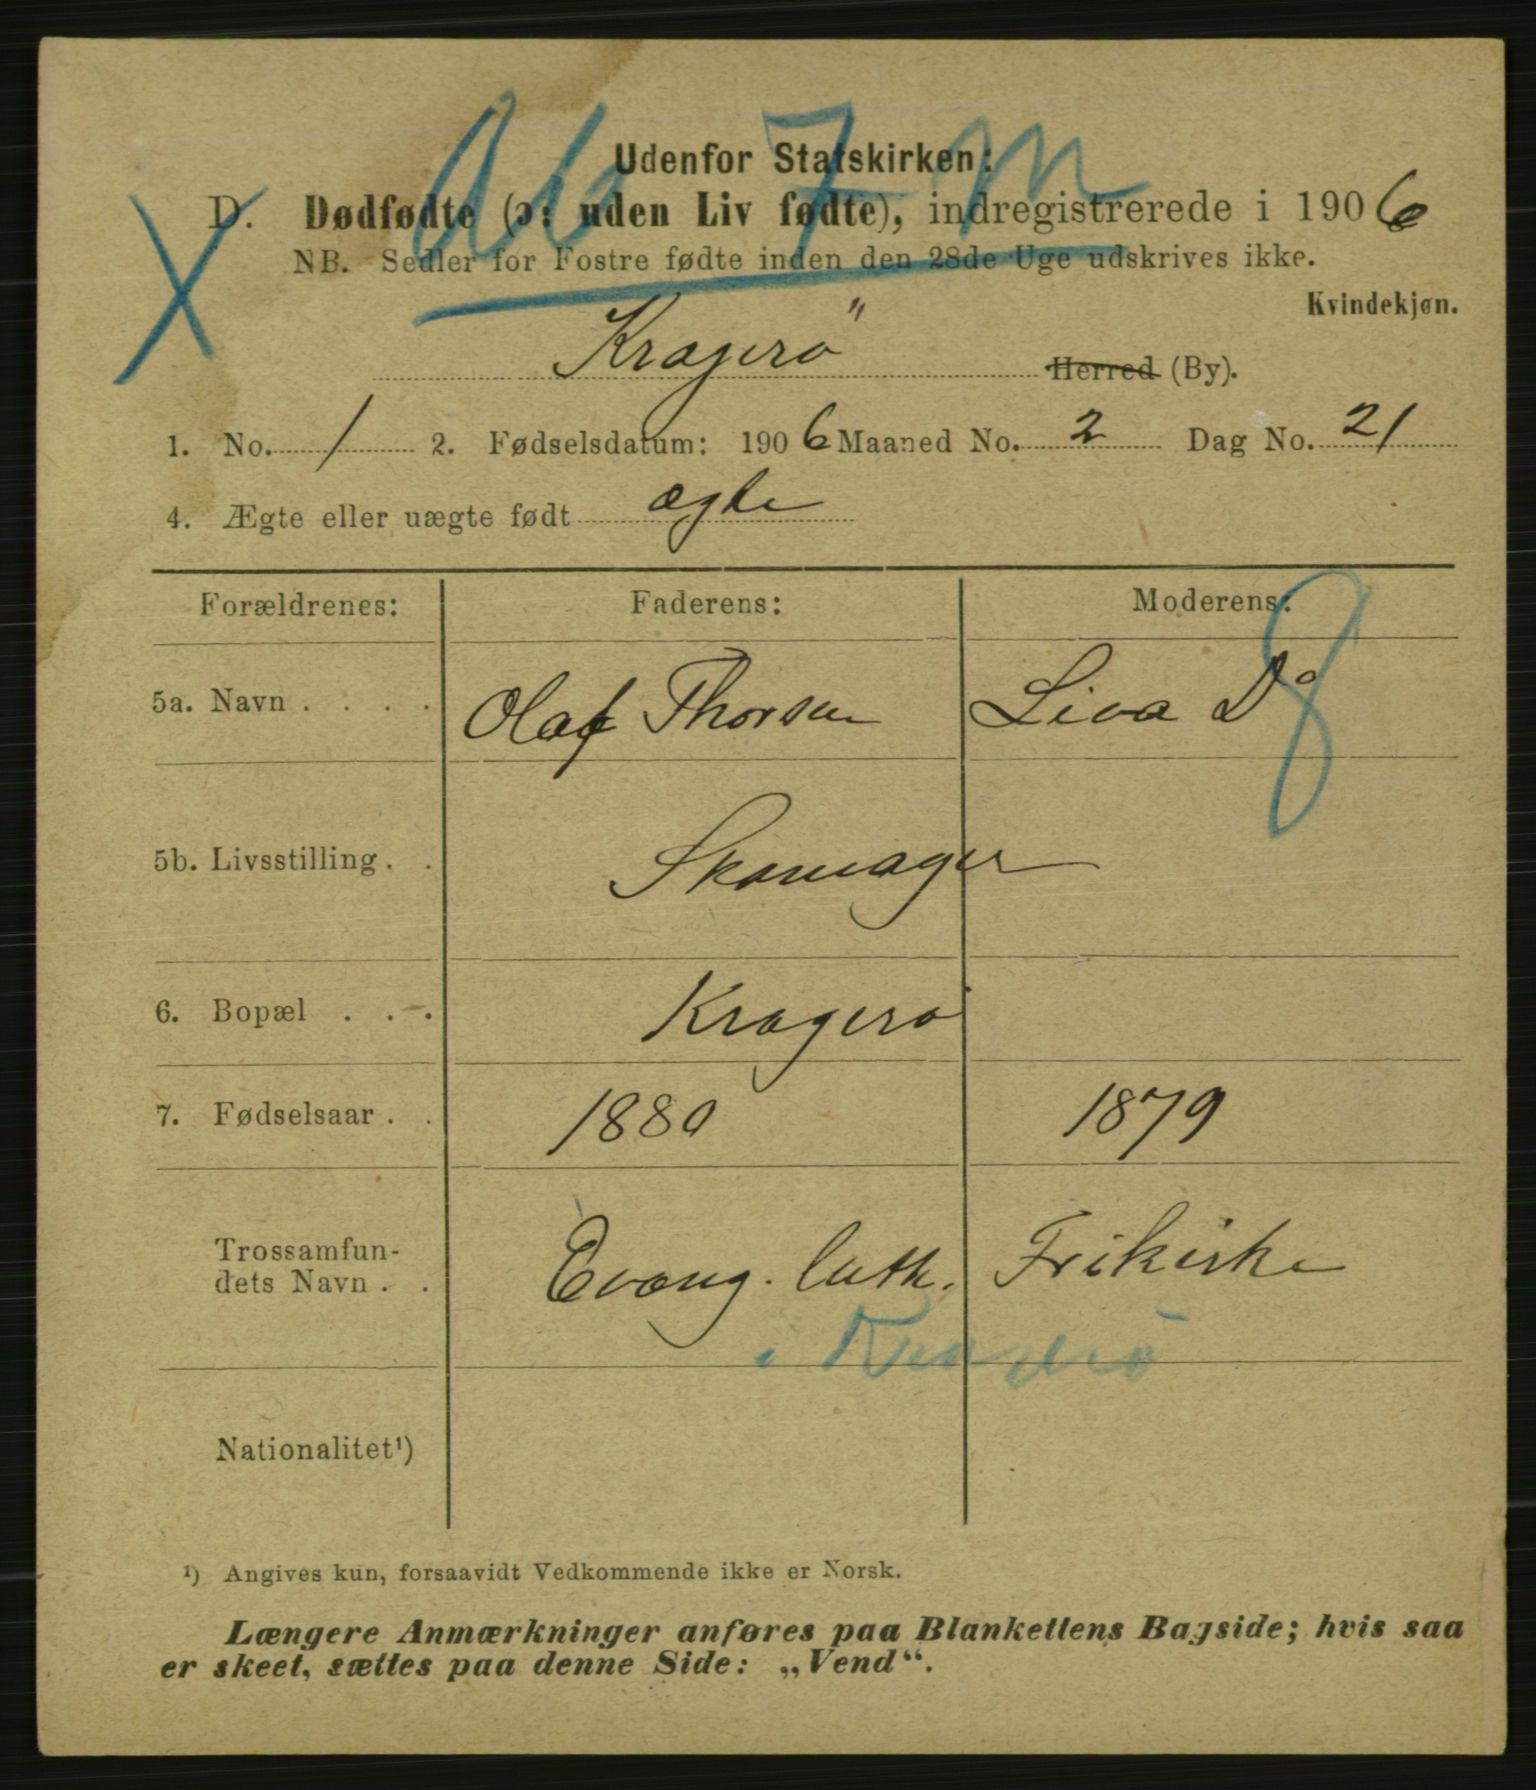 Udenfor Statskirken:
D. Dødfødte (ɔ: uden Liv fødte), indregistrerede i 1906
NB. Sedler for Fostre fødte inden den 28de Uge udskrives ikke.
Kvindekjøn.
Kragerö Herred (By).
1. No. 1 2. Fødselsdatum: 1906 Maaned No. 2 Dag No. 21
4. Ægte eller uægte født ægte
Forældrenes: Faderens: Moderens:
5a. Navn . . . . Olaf Thorsen Liva Do
5b. Livsstilling . . Skomager
6. Bopæl . . . Kragerø
7. Fødselsaar . . 1880 1879
Trossamfun-
dets Navn . . Evang. luth. Frikirke
i Kragerö
Nationalitet¹)
¹) Angives kun, forsaavidt Vedkommende ikke er Norsk.
Længere Anmærkninger anføres paa Blankettens Bagside; hvis saa
er skeet, sættes paa denne Side: „Vend“.